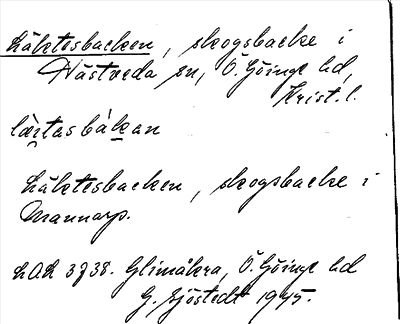 Läktesbacken, skogsbacke i
Hästveda sn, Ö. Göinge hd,
Krist. l.
lä̀ktasbákan
Läktesbacken, skogsbacke i
Mannarp.
LAL 3738. Glimåkra, Ö. Göinge hd
G. Sjöstedt 1945.